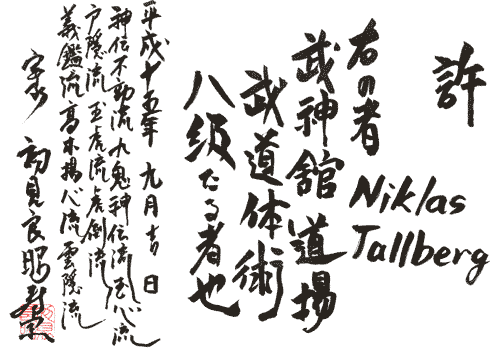 許
右の者
Niklas
Tallberg
武神舘道場
武道体術
八級たる者也
平成十五年 九月吉日
神伝不動流 九鬼神伝流 玉心流
戸隠流 玉虎流 虎倒流
義鑑流 高木揚心流 雲隠流
宗家 初見良昭